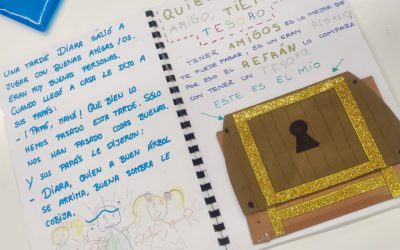 UNA TARDE DIARA BAJÓ A
JUGAR CON BUENAS AMIGAS/OS.
ERAN MUY BUENAS PERSONAS.
CUANDO LLEGÓ A CASA LE DIJO A
SUS PAPÁS:
- ¡PAPÁ, MAMÁ! QUE BIEN LO
HEMOS PASADO ESTA TARDE. SÓLO
NOS HAN PASADO COSAS BUENAS.
Y SUS PAPÁS LE DIJERON:
- DIARA, QUIEN A BUEN ÁRBOL
SE ARRIMA, BUENA SOMBRA LE
COBIJA.
AMIGO,
TESORO
TENER AMIGOS ES LO MEJOR QUE
TE PUEDE PASAR, ES UN GRAN REGALO
POR ESO EL REFRÁN LO COMPARA
CON TENER UN TESORO.
ESTE ES EL MÍO